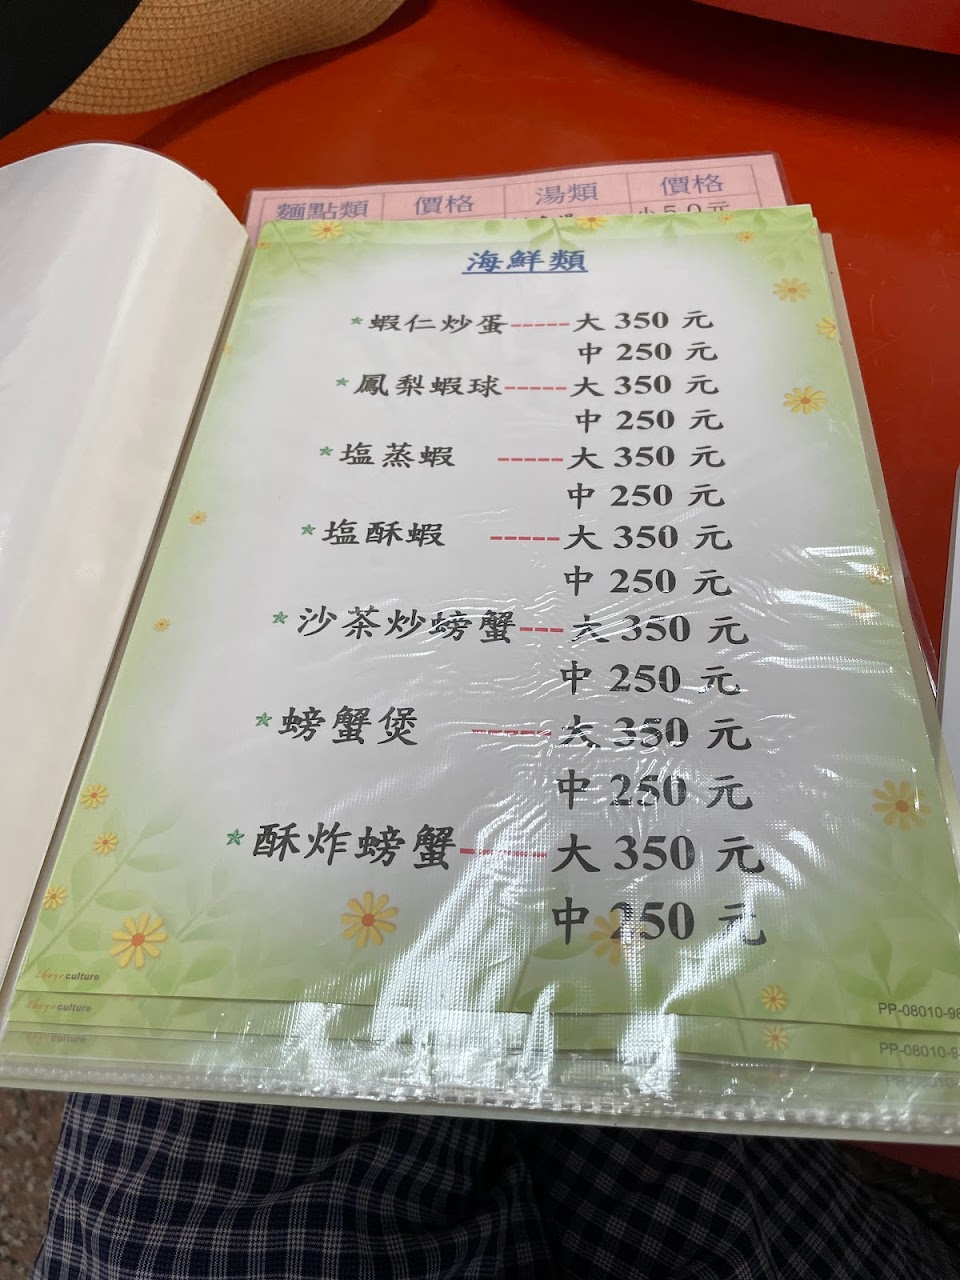 麵點類 價格 湯類 價格
小50元
海鮮類
*蝦仁炒蛋-----大 350 元
中 250 元
*鳳梨蝦球-----大 350 元
中 250 元
*塩蒸蝦 -----大 350 元
中 250 元
*塩酥蝦 -----大 350 元
中 250 元
*沙茶炒螃蟹---大 350 元
中 250 元
*螃蟹煲 -----大 350 元
中 250 元
*酥炸螃蟹------大 350 元
中 250 元
culture
culture
culture
PP-08010-98
PP-08010-9
PP-08010-